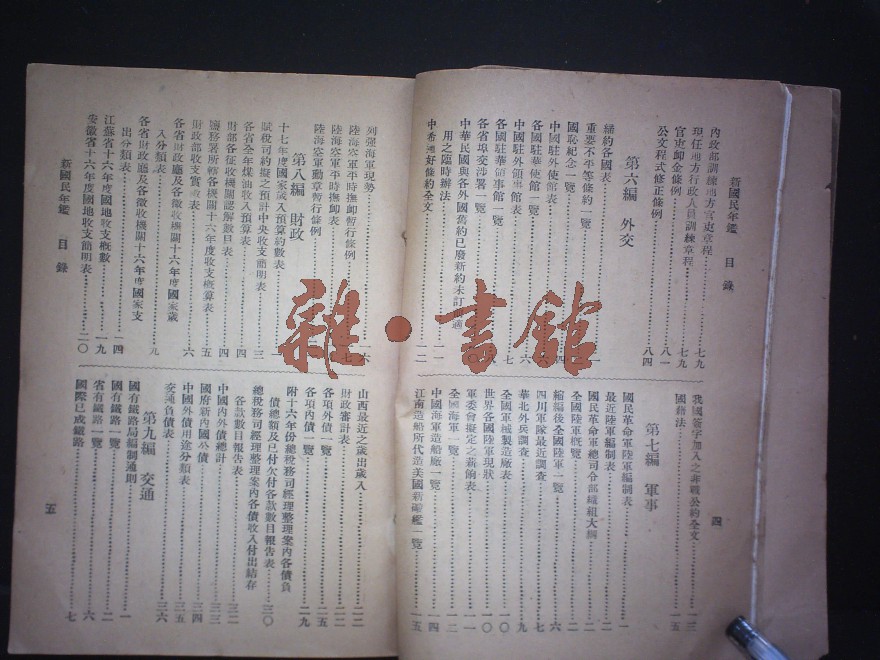 新國民年鑑　目錄
內政部訓練地方官吏章程　七九
現任地方行政人員訓練章程　七九
官吏卹金條例　八一
公文程式修正條例　八四
第六編　外交
締約各國表
重要不平等條約一覽
國恥紀念一覽
中國駐外使館表
各國駐華使館一覽
中國駐外領事館表
各國駐華領事館一覽
各省埠交涉署一覽
中華民國與各外國舊約已廢新約未訂適
用之臨時辦法　一一
中希通好條約全文　一二
我國簽字加入之非戰公約全文　一三
國籍法　一五
第七編　軍事
國民革命軍陸軍編制表　一
最近陸軍編制表　二
國民革命軍總司令部織組大綱　二
全國陸軍概覽　二
縮編後全國陸軍一覽　六
四川軍隊最近調查　七
華北外兵調查　九
全國軍械製造廠表　一〇
世界各國陸軍現狀　一〇
軍委會擬定之薪餉表　一一
全國海軍一覽　一二
中國海軍造船廠一覽　一四
江南造船所代造美國新礮艦一覽　一五
四
列強海軍現勢
陸海空軍平時撫卹暫行條例
陸海空軍平時撫卹表
陸海空軍勳章暫行條例
第八編　財政
十七年度國家歲入預算約數表
賦稅司約擬之預計中央收支簡明表　三
各省全年煤油收入預算表　四
財部各征收機關認解數目表　四
鹽務署所轄各機關十六年度收支概算表　五
財政部收支實數表　六
各省財政廳及各徵收機關十六年度國家歲
入分類表
各省財政廳及各徵收機關十六年度國家支
出分類表　一四
江蘇省十六年度國地收支概數　一九
安徽省十六年度國地收支簡明表　二〇
山西最近之歲出歲入　二二
財政審計表　二二
各項外債一覽　二五
各項內債一覽　二九
附十六年份總稅務司經理整理案內各債負
債總額及已付欠付各款數目報告表　三〇
總稅務司經理整理案內各債收入付出結存
各款數目報告表　三二
中國內外債總計　三三
國府新內國公債　三四
中國外債用途分類表　三五
交通負債表　三六
第九編　交通
國有鐵路局編制通則　一
國有鐵路一覽　二
省有鐵路一覽　六
國際已成鐵路　七
新國民年鑑　目錄
五
雜·書館